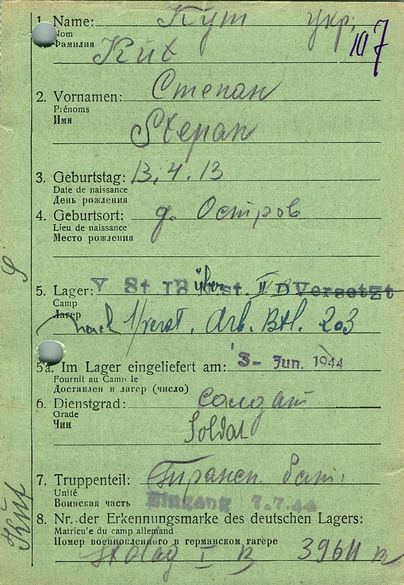 1. Name: Кут укр. 107
Nom
Фамилия
Kut
2. Vornamen: Степан
Prénoms
Имя
Stepan
3. Geburtstag: 13.4.13
Date de naissance
День рождения
4. Geburtsort: д. Остров
Lieu de naissance
Место рождения
5. Lager: St IB über St. II D Versetzt
Camp
Лагер
nach 1/verst. Arb. Btl. 203
5a. Im Lager eingeliefert am: 3- Jun. 1944
Fournit au Camp le
Доставлен в лагер (число)
6. Dienstgrad: солдат
Grade
Чин
Soldat
7. Truppenteil:
Unité
Воинская часть Eingang 7.7.44
8. Nr. der Erkennungsmarke des deutschen Lagers:
Matricu'e du camp allemand
Номер военнопленного в германском лагере
Stalag I B
Kut